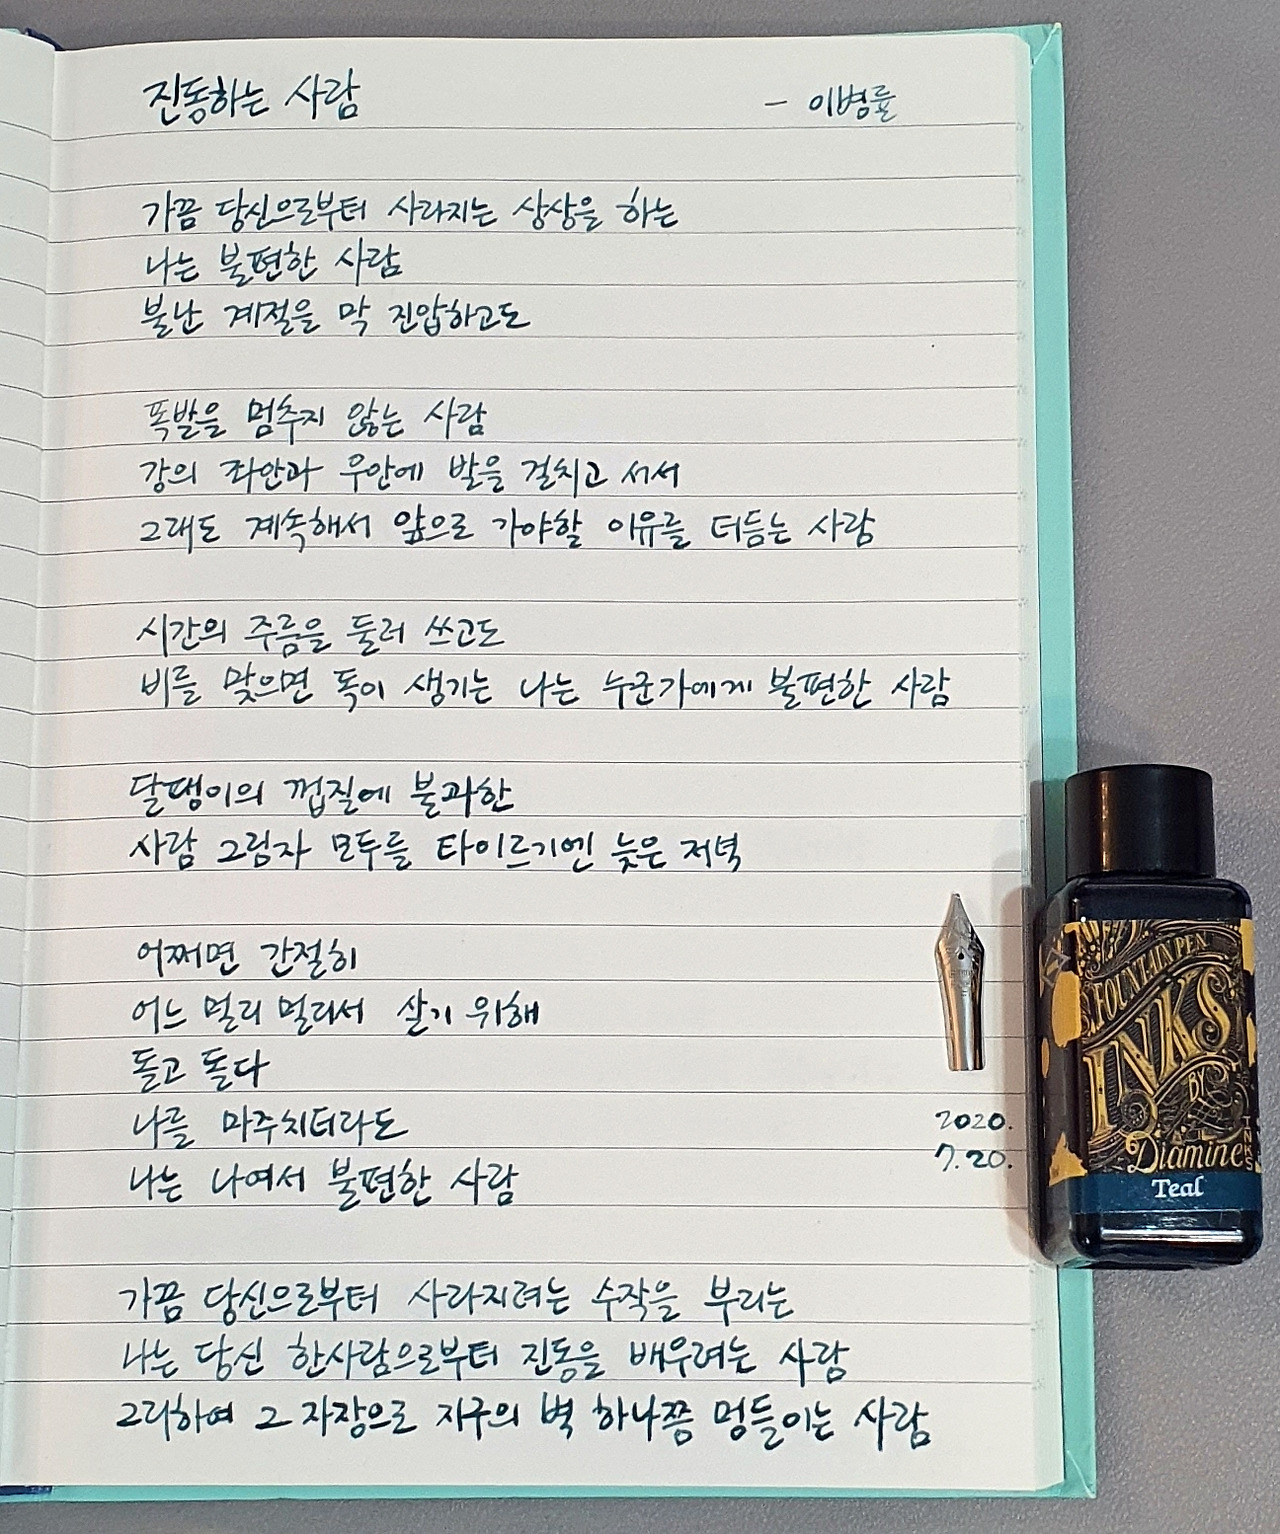 진동하는 사람 - 이병률
가끔 당신으로부터 사라지는 상상을 하는
나는 불편한 사람
불난 계절을 막 진압하고도
폭발을 멈추지 않는 사람
강의 좌안과 우안에 발을 걸치고 서서
그래도 계속해서 앞으로 가야할 이유를 더듬는 사람
시간의 주름을 둘러 쓰고도
비를 맞으면 독이 생기는 나는 누군가에게 불편한 사람
달팽이의 껍질에 불과한
사람 그림자 모두를 타이르기엔 늦은 저녁
어쩌면 간절히
어느 멀리 멀리서 살기 위해
돌고 돌다
나를 마주치더라도
나는 나여서 불편한 사람
2020.
7.20.
가끔 당신으로부터 사라지려는 수작을 부리는
나는 당신 한사람으로부터 진동을 배우려는 사람
그리하여 그 자장으로 지구의 벽 하나쯤 멍들이는 사람
FOUNTAIN PEN
INKS
BY
Diamine
Teal